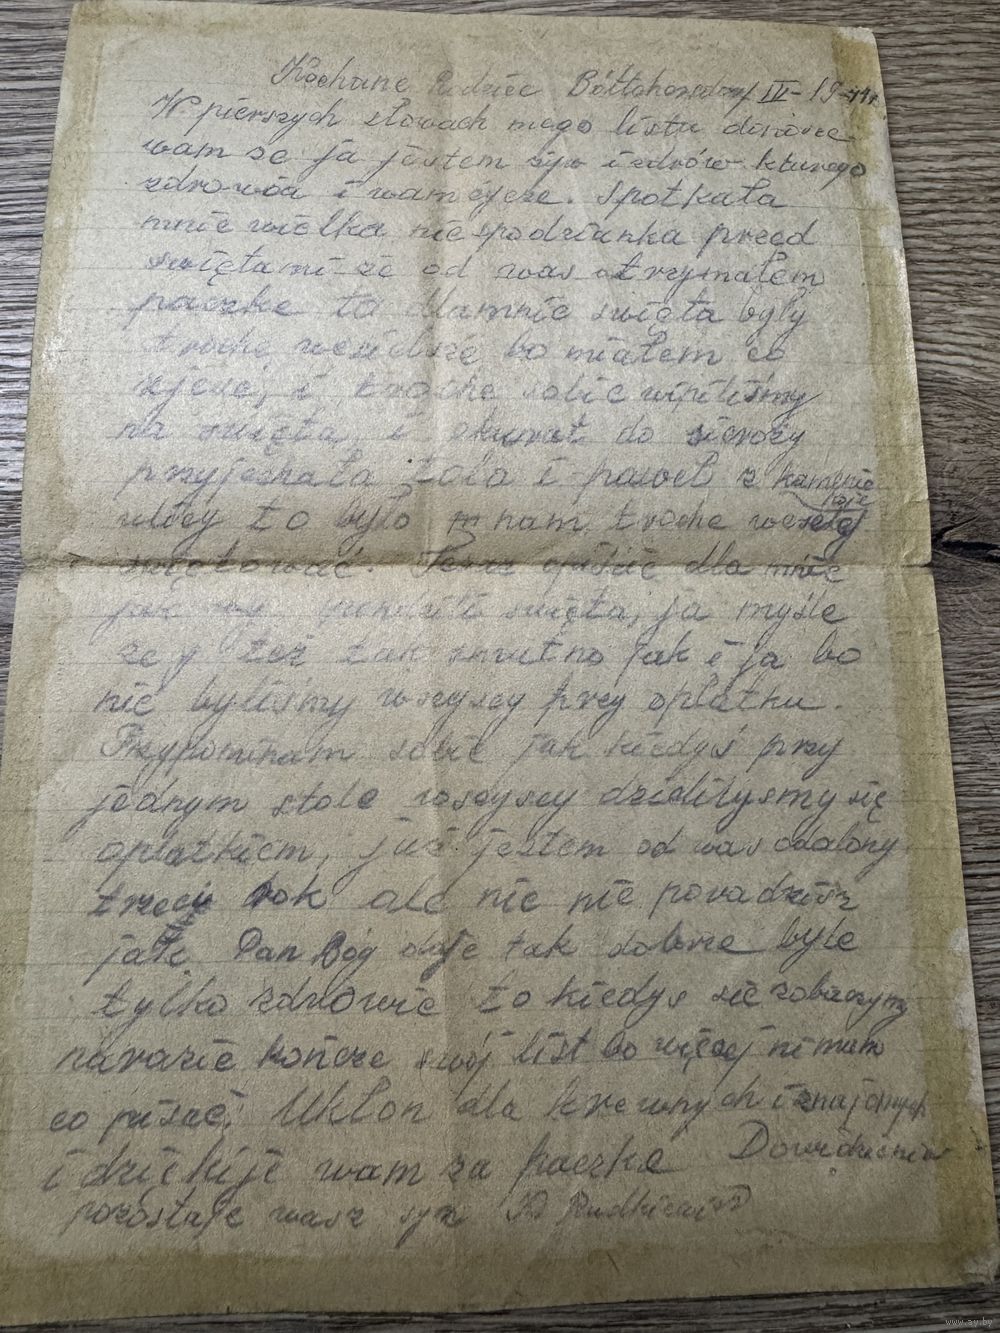 Kochane Rodzice IV - 1944r
W pierszych słowach mego listu donosze
wam że ja jestem żyw i zdrów kturego
zdrowia i wam życze. Spotkała
mnie wielka niespodzianka przed
świętami że od was otrzymałem
paczke to dlamnie święta były
troche weselsze bo miałem co
zjeść, i troche sobie wipiliśmy
na święta, i akurat do
przyjechała Lola i paweł z kamenic
to było nam troche weselej
świętować. Teraz opiszcie dla mnie
jak wy święta, ja myśle
że y też tak smutno jak i ja bo
nie byliśmy wszyscy przy opłatku.
Przypominam sobie jak kiedyś przy
jednym stole wszyscy dzieliliśmy się
opłatkiem, już jestem od was odalony
trzeci rok ale nic nie poradzisz
jak Pan Bóg daje tak dobrze byle
tylko zdrowie to kiedys sie zobaczymy
narazie kończe swój list bo więcej nimam
co pisać, Ukłon dla krewnych i znajomych
i dziękuje wam za paczke Dowidzenia
pozostaje wasz syn Rudkiewicz
www.ay.by